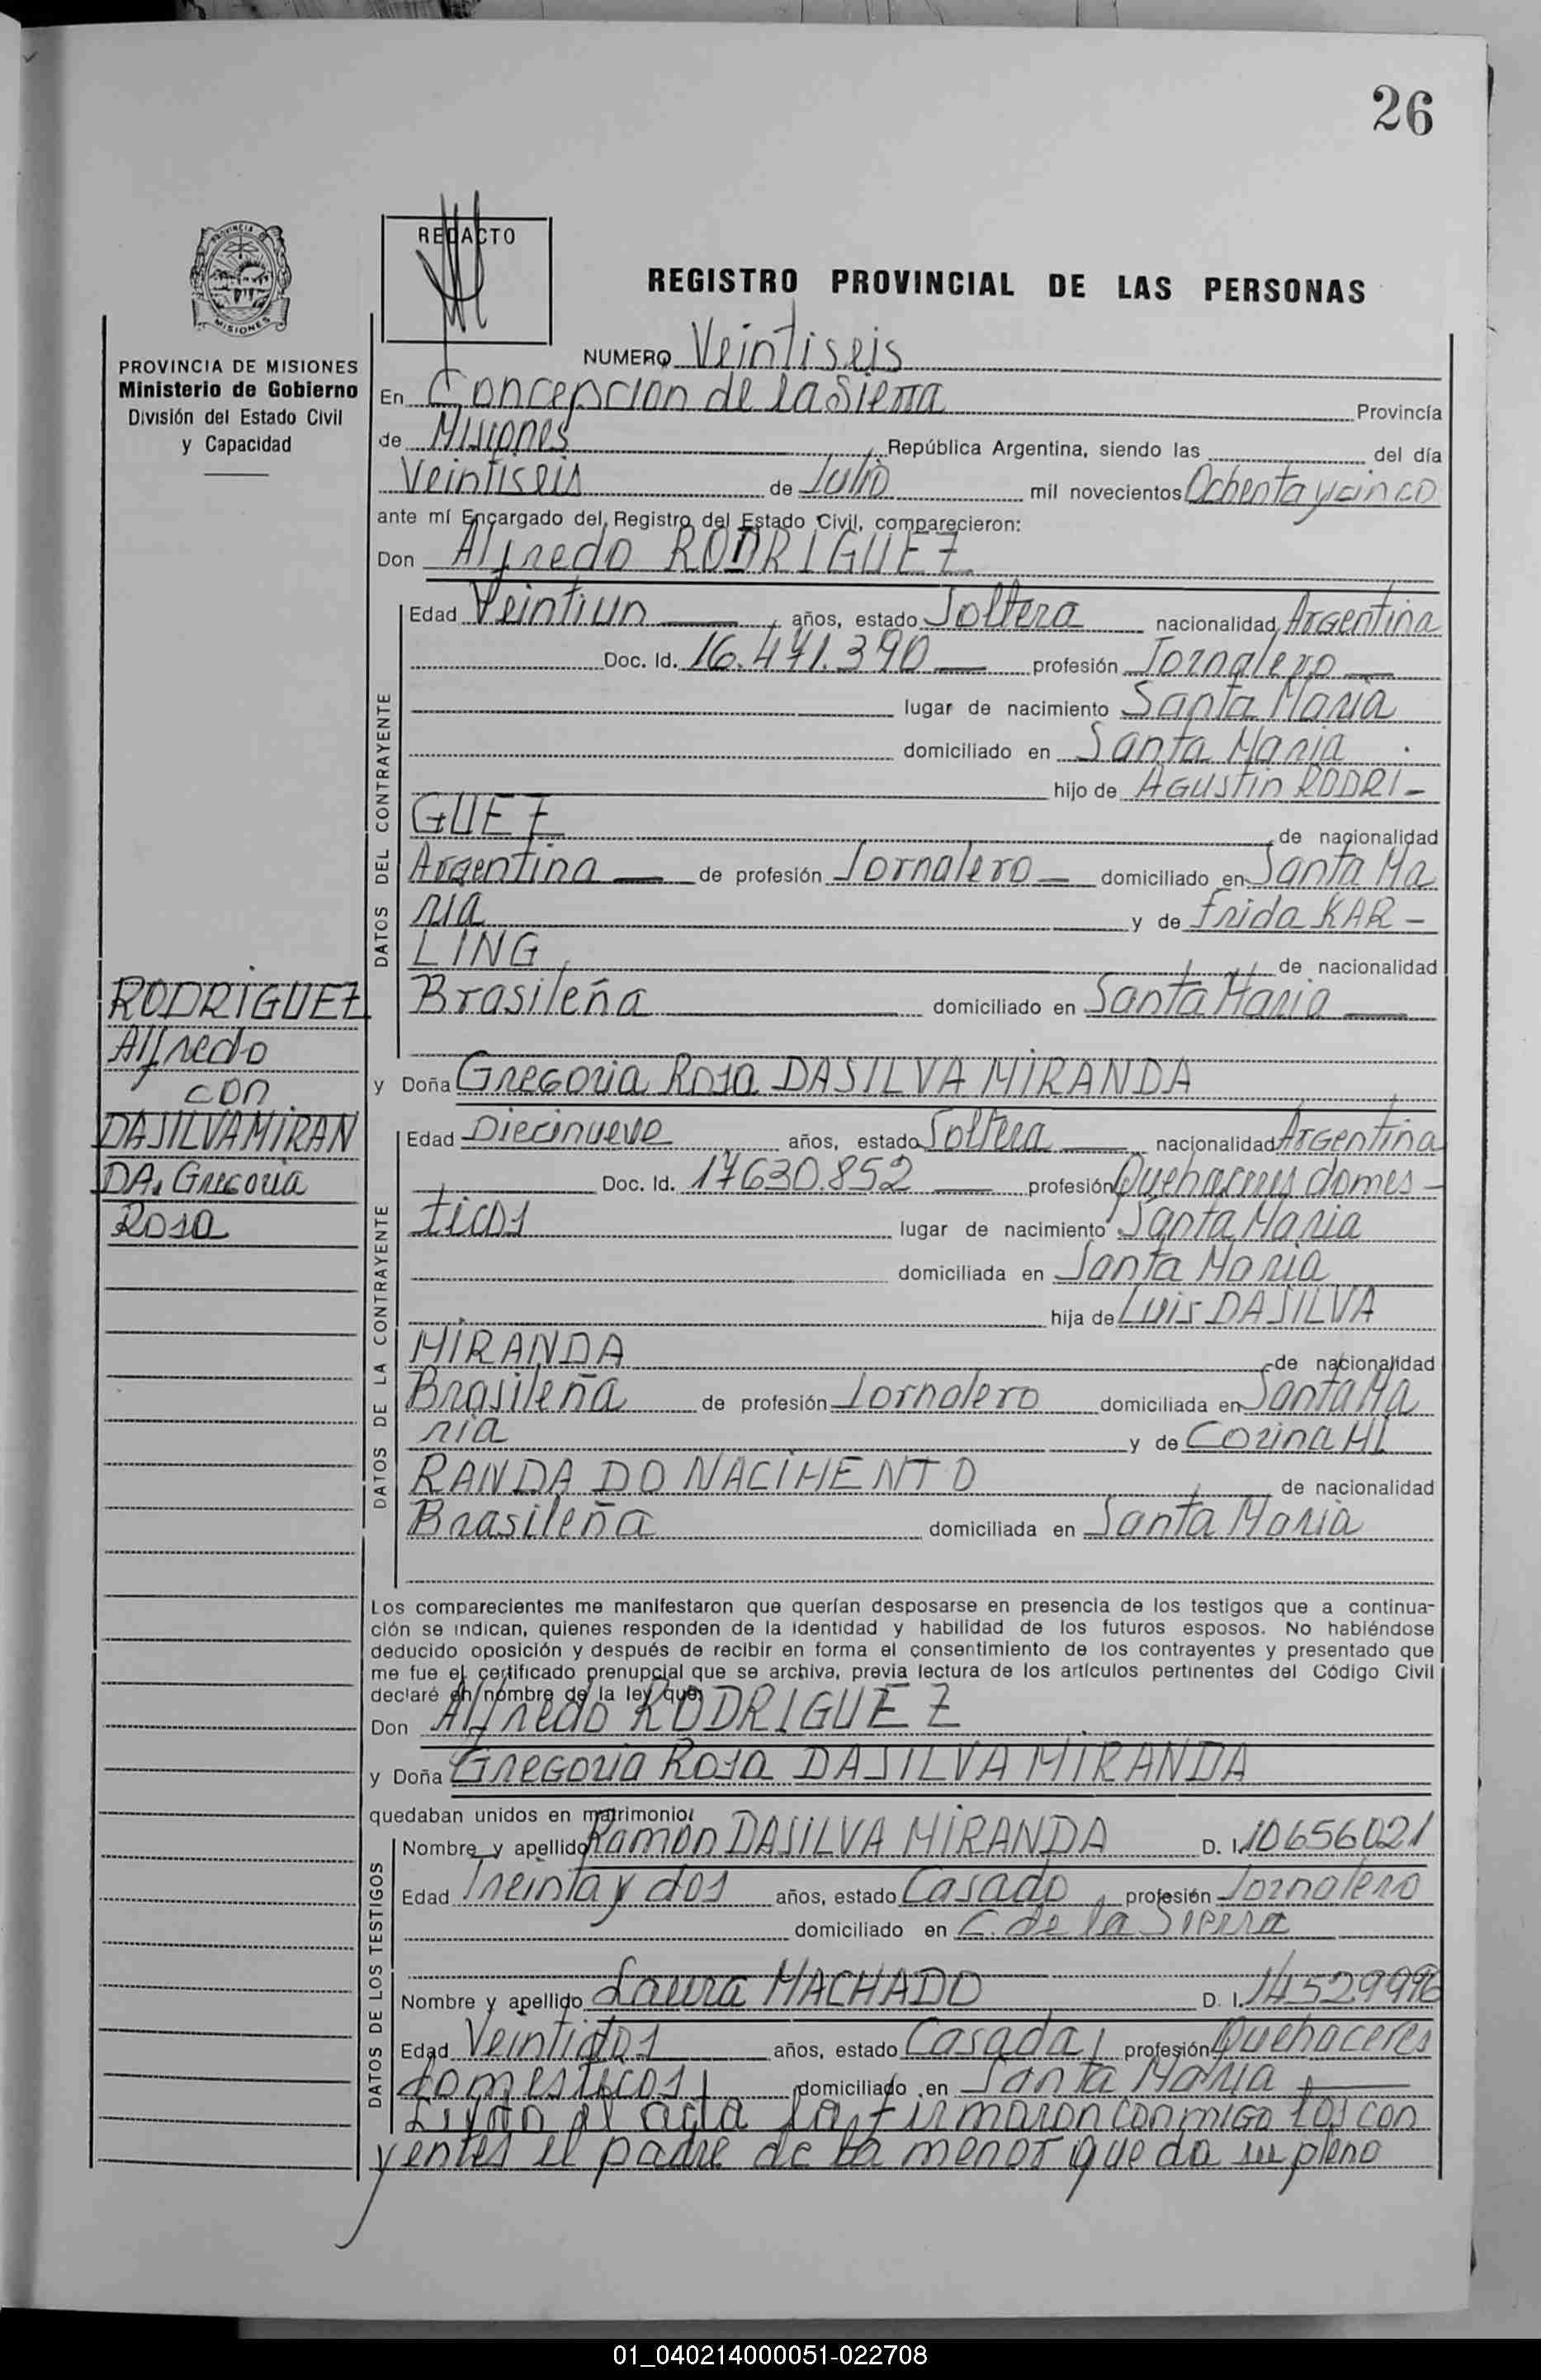 26
REDACTO
REGISTRO PROVINCIAL DE LAS PERSONAS
PROVINCIA DE MISIONES
Ministerio de Gobierno
División del Estado Civil
y Capacidad
NUMERO Veintiseis
En Concepcion de la Sierra Provincia
de Misiones República Argentina, siendo las del día
Veintiseis de Julio mil novecientos Ochenta y cinco
ante mí Encargado del Registro del Estado Civil, comparecieron:
Don Alfredo RODRIGUEZ
DATOS DEL CONTRAYENTE
Edad Veintiun años, estado Soltera nacionalidad Argentina
Doc. Id. 16.471.390 profesión Jornalero
lugar de nacimiento Santa Maria
domiciliado en Santa Maria
hijo de Agustin RODRI-
GUEZ de nacionalidad
Argentina de profesión Jornalero domiciliado en Santa Ma
ria y de Frida KAR-
LING de nacionalidad
Brasileña domiciliado en Santa Maria
RODRIGUEZ
Alfredo
con
DASILVA MIRAN
DA. Gregoria
Rosa
y Doña Gregoria Rosa DASILVA MIRANDA
DATOS DE LA CONTRAYENTE
Edad Diecinueve años, estado Soltera nacionalidad Argentina
Doc. Id. 17630.852 profesión Quehaceres domes-
ticos lugar de nacimiento Santa Maria
domiciliada en Santa Maria
hija de Luis DASILVA
MIRANDA de nacionalidad
Brasileña de profesión Jornalero domiciliada en Santa Ma
ria y de Corina MI
RANDA DO NACIMENTO de nacionalidad
Brasileña domiciliada en Santa Maria
Los comparecientes me manifestaron que querían desposarse en presencia de los testigos que a continua-
ción se indican, quienes responden de la identidad y habilidad de los futuros esposos. No habiéndose
deducido oposición y después de recibir en forma el consentimiento de los contrayentes y presentado que
me fue el certificado prenupcial que se archiva, previa lectura de los artículos pertinentes del Código Civil
declaré en nombre de la ley que:
Don Alfredo RODRIGUEZ
y Doña Gregoria Rosa DASILVA MIRANDA
quedaban unidos en matrimonio:
DATOS DE LOS TESTIGOS
Nombre y apellido Ramon DASILVA MIRANDA D. I. 10656021
Edad Treinta y dos años, estado Casado profesión Jornalero
domiciliado en C. de la Sierra
Nombre y apellido Laura MACHADO D. I. 14529996
Edad Veintidos años, estado Casada profesión Quehaceres
domesticos domiciliado en Santa Maria
Leida el acta la firmaron conmigo los con
yentes el padre de la menor que da su pleno
01_040214000051-022708